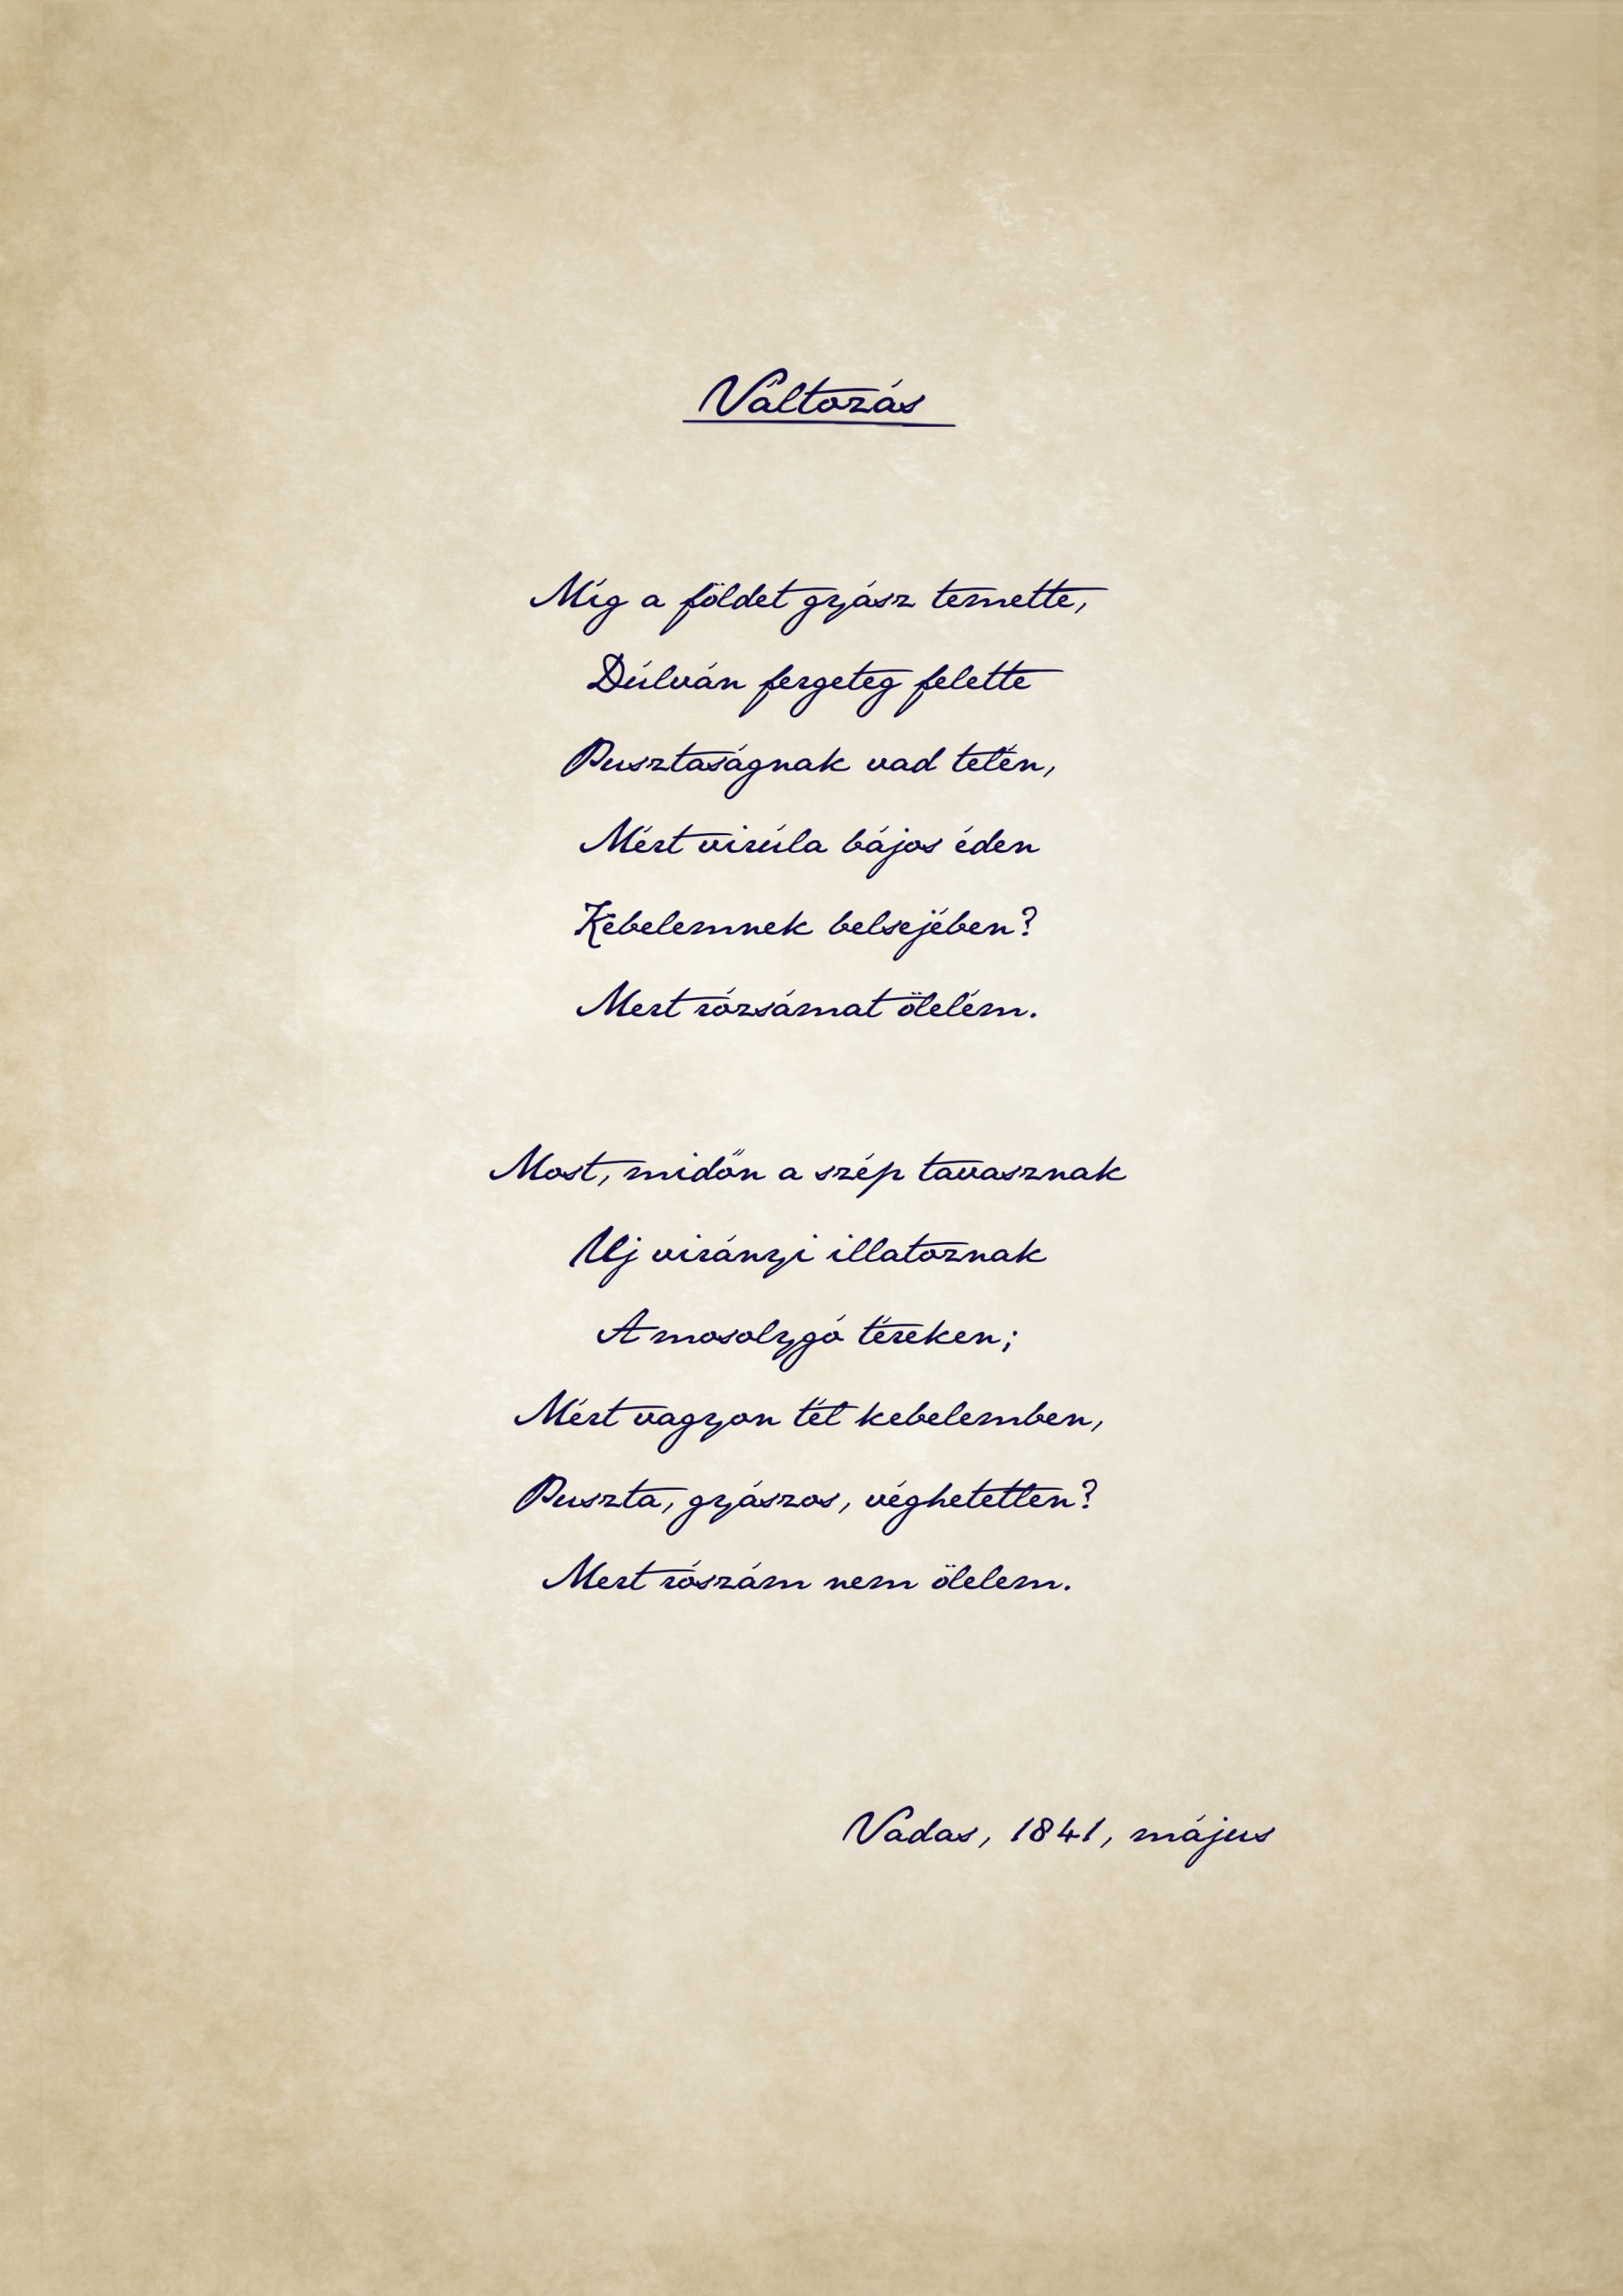 Változás
Míg a földet gyász temette,
Dúlván fergeteg felette
Pusztaságnak vad telén,
Mért virúla bájos éden
Kebelemnek belsejében?
Mert rózsámat ölelém.
Most, midőn a szép tavasznak
Uj virányi illatoznak
A mosolygó téreken;
Mért vagyon tél kebelemben,
Puszta, gyászos, véghetetlen?
Mert rószám nem ölelem.
Vadas, 1841, május